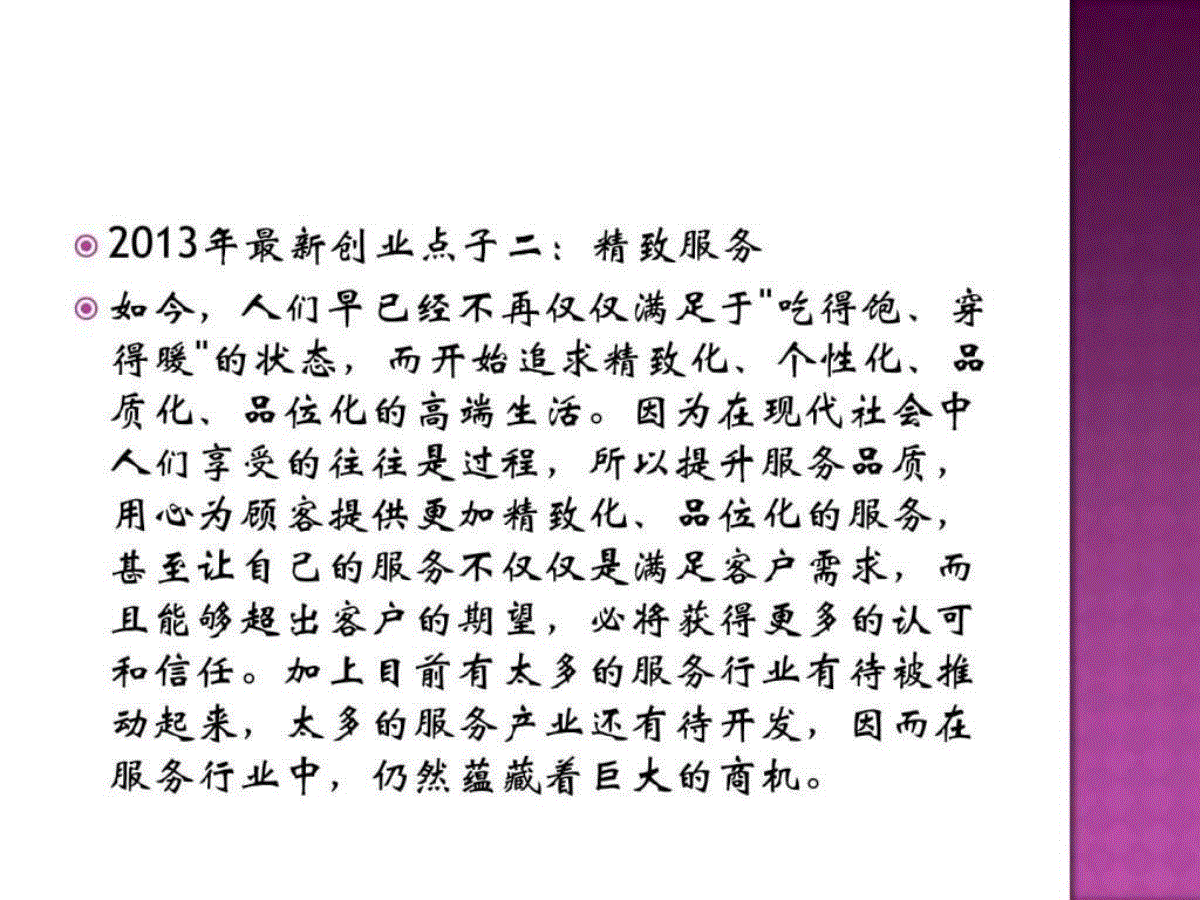 2013年最新创业点子二：精致服务
如今，人们早已经不再仅仅满足于"吃得饱、穿
得暖"的状态，而开始追求精致化、个性化、品
质化、品位化的高端生活。因为在现代社会中
人们享受的往往是过程，所以提升服务品质，
用心为顾客提供更加精致化、品位化的服务，
甚至让自己的服务不仅仅是满足客户需求，而
且能够超出客户的期望，必将获得更多的认可
和信任。加上目前有太多的服务行业有待被推
动起来，太多的服务产业还有待开发，因而在
服务行业中，仍然蕴藏着巨大的商机。